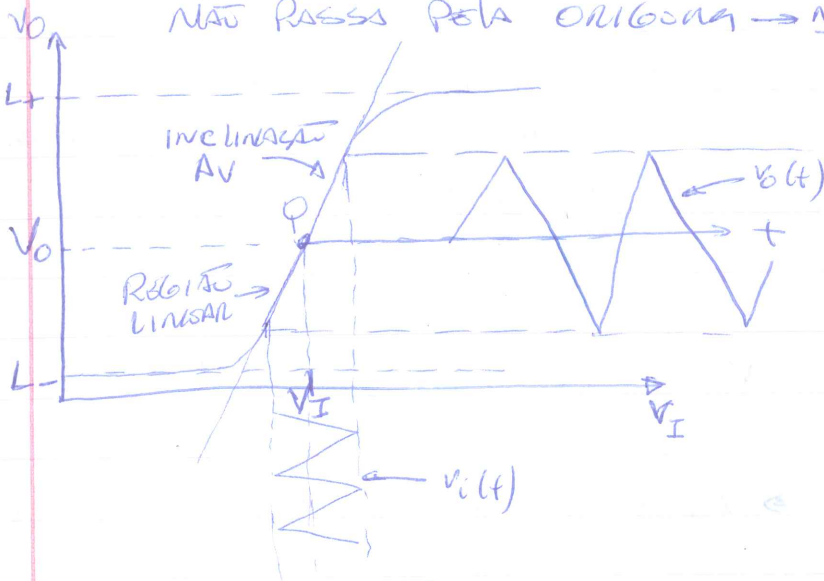 NÃO PASSA PELA ORIGEM →
vO
L+
INCLINAÇÃO
AV
vo(t)
Q
VO
t
REGIÃO
LINEAR
L-
VI
vI
vi(t)